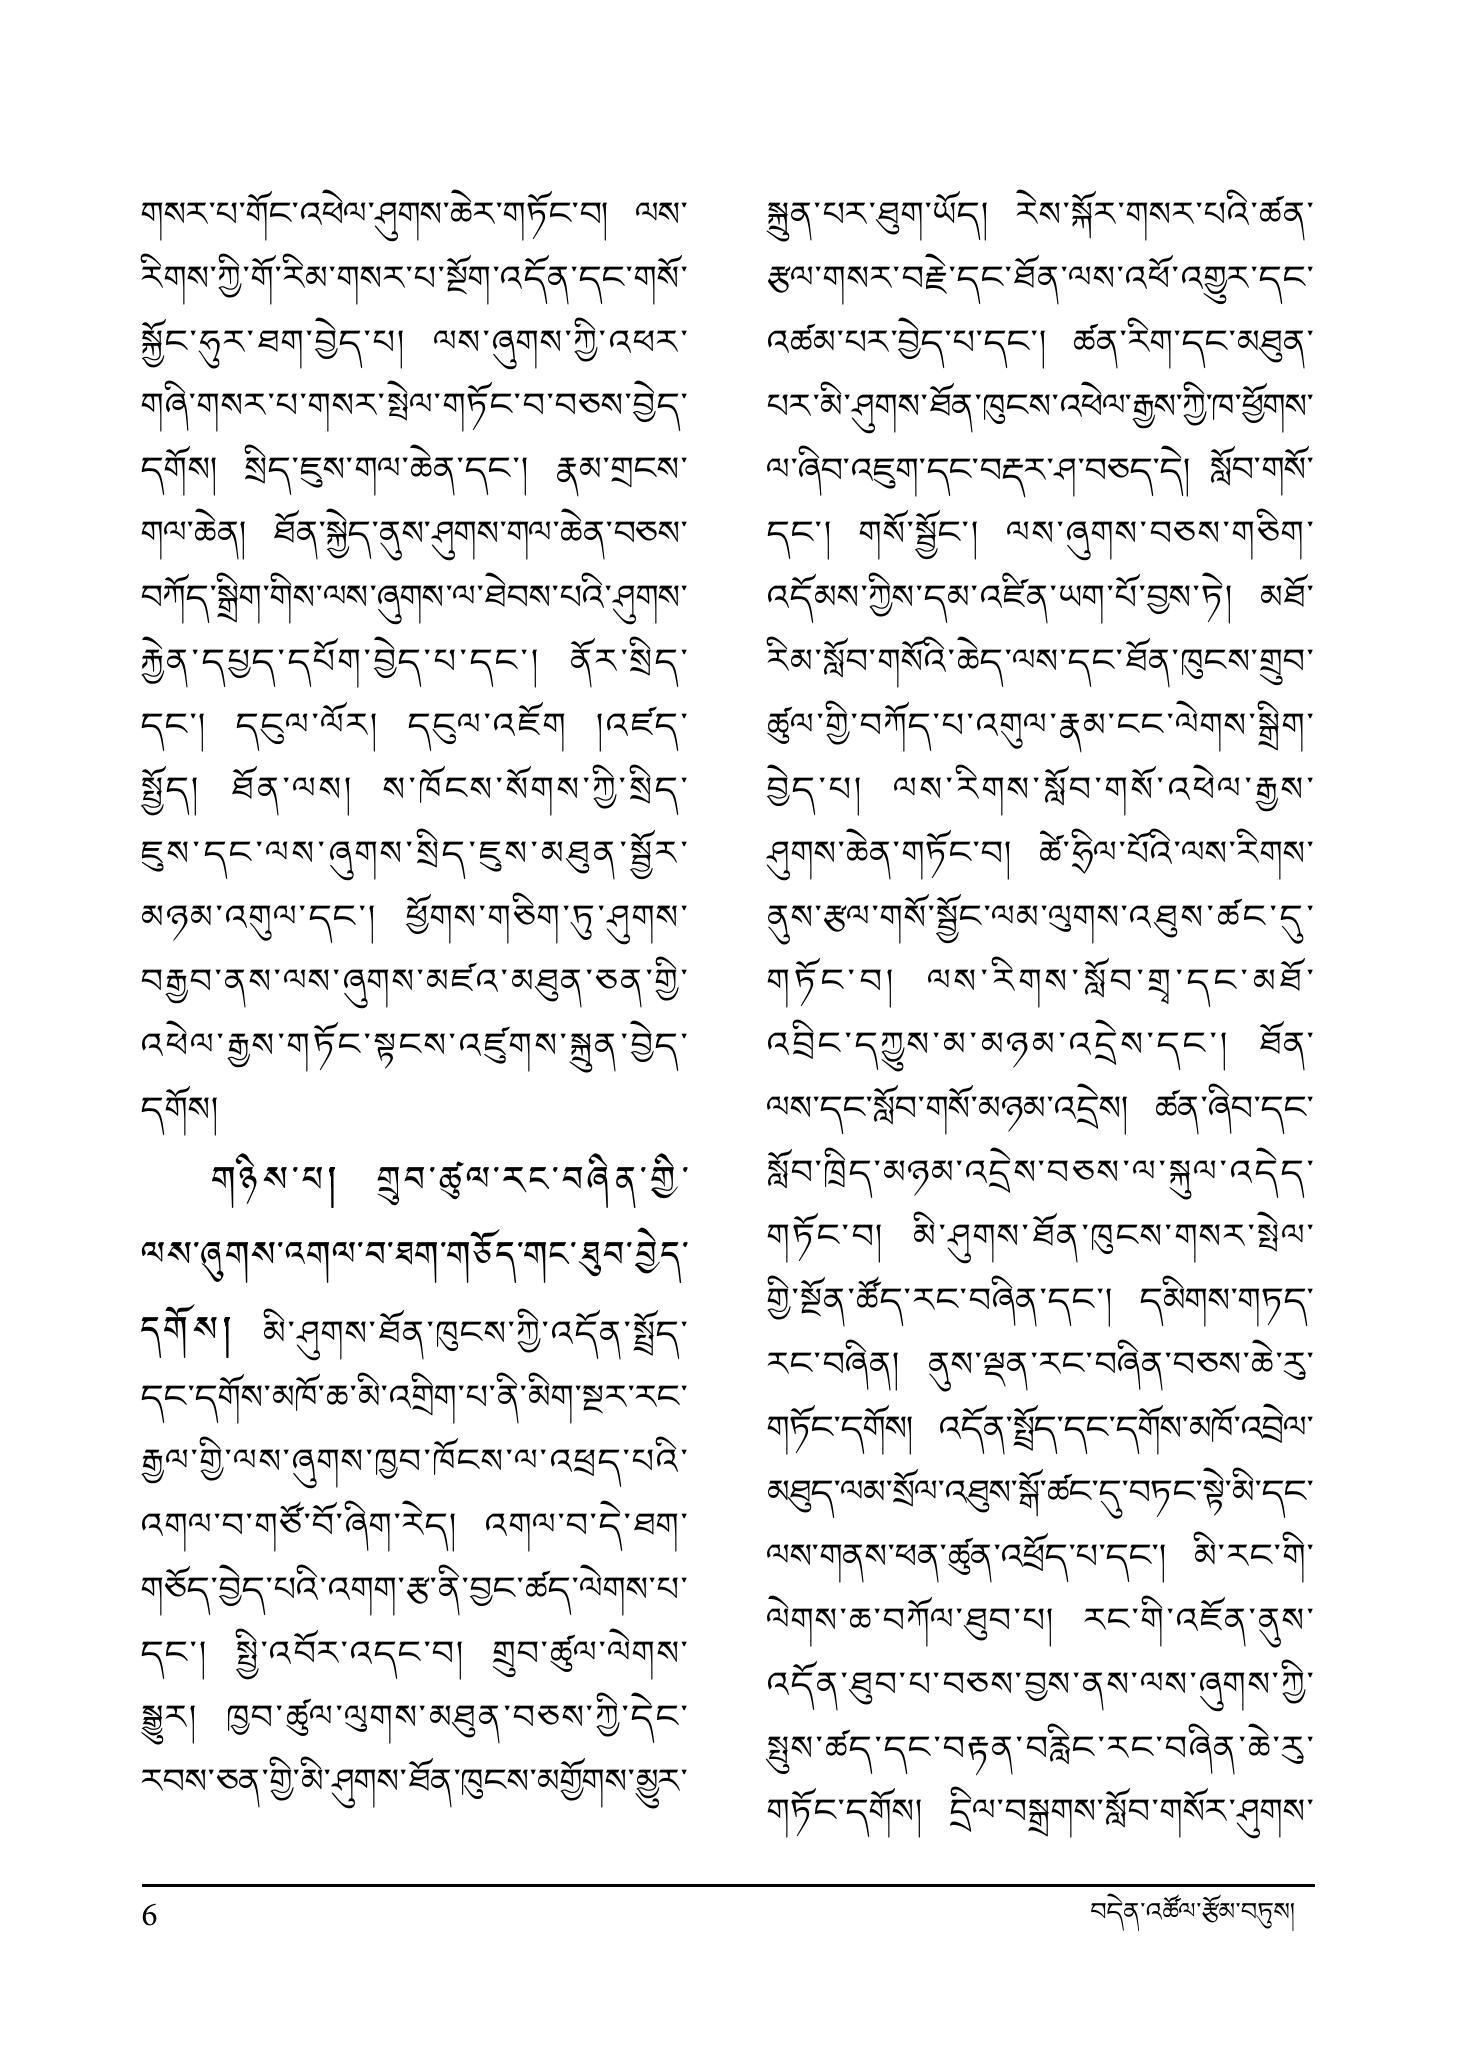 གསར་པ་གོང་འཕེལ་ཤུགས་ཆེར་གཏོང་བ། ལས་
རིགས་ཀྱི་གོ་རིམ་གསར་པ་སྔོག་འདོན་དང་གསོ་
སྐྱོང་ཧུར་ཐག་བྱེད་པ། ལས་ཞུགས་ཀྱི་འཕར་
གཞི་གསར་པ་གསར་སྤེལ་གཏོང་བ་བཅས་བྱེད་
དགོས། སྲིད་ཇུས་གལ་ཆེན་དང་། རྣམ་གྲངས་
གལ་ཆེན། ཐོན་སྐྱེད་ནུས་ཤུགས་གལ་ཆེན་བཅས་
བཀོད་སྒྲིག་གིས་ལས་ཞུགས་ལ་ཐེབས་པའི་ཤུགས་
རྐྱེན་དཔྱད་དཔོག་བྱེད་པ་དང་། ནོར་སྲིད་
དང་། དངུལ་ལོར། དངུལ་འཇོག །འཛད་
སྤྱོད། ཐོན་ལས། ས་ཁོངས་སོགས་ཀྱི་སྲིད་
ཇུས་དང་ལས་ཞུགས་སྲིད་ཇུས་མཐུན་སྦྱོར་
མཉམ་འགུལ་དང་། ཕྱོགས་གཅིག་ཏུ་ཤུགས་
བརྒྱབ་ནས་ལས་ཞུགས་མཛའ་མཐུན་ཅན་གྱི་
འཕེལ་རྒྱས་གཏོང་སྟངས་འཛུགས་སྐྲུན་བྱེད་
དགོས།
གཉིས་པ། གྲུབ་ཚུལ་རང་བཞིན་གྱི་
ལས་ཞུགས་འགལ་བ་ཐག་གཅོད་གང་ཐུབ་བྱེད་
དགོས། མི་ཤུགས་ཐོན་ཁུངས་ཀྱི་འདོན་སྤྲོད་
དང་དགོས་མཁོ་ཆ་མི་འགྲིག་པ་ནི་མིག་སྔར་རང་
རྒྱལ་གྱི་ལས་ཞུགས་ཁྱབ་ཁོངས་ལ་འཕྲད་པའི་
འགལ་བ་གཙོ་བོ་ཞིག་རེད། འགལ་བ་དེ་ཐག་
གཅོད་བྱེད་པའི་འགག་རྩ་ནི་བྱང་ཚད་ལེགས་པ་
དང་། སྤྱི་འབོར་འདང་བ། གྲུབ་ཚུལ་ལེགས་
སྒྱུར། ཁྱབ་ཚུལ་ལུགས་མཐུན་བཅས་ཀྱི་དེང་
རབས་ཅན་གྱི་མི་ཤུགས་ཐོན་ཁུངས་མགྱོགས་མྱུར་
སྐྲུན་པར་ཐུག་ཡོད། རེས་སྐོར་གསར་པའི་ཚན་
རྩལ་གསར་བརྗེ་དང་ཐོན་ལས་འཕོ་འགྱུར་དང་
འཚམ་པར་བྱེད་པ་དང་། ཚན་རིག་དང་མཐུན་
པར་མི་ཤུགས་ཐོན་ཁུངས་འཕེལ་རྒྱས་ཀྱི་ཁ་ཕྱོགས་
ལ་ཞིབ་འཇུག་དང་བརྡར་ཤ་བཅད་དེ། སློབ་གསོ་
དང་། གསོ་སྦྱོང་། ལས་ཞུགས་བཅས་གཅིག་
འདོམས་ཀྱིས་དམ་འཛིན་ཡག་པོ་བྱས་ཏེ། མཐོ་
རིམ་སློབ་གསོའི་ཆེད་ལས་དང་ཐོན་ཁུངས་གྲུབ་
ཚུལ་གྱི་བཀོད་པ་འགུལ་རྣམ་ངང་ལེགས་སྒྲིག་
བྱེད་པ། ལས་རིགས་སློབ་གསོ་འཕེལ་རྒྱས་
ཤུགས་ཆེན་གཏོང་བ། ཚེ་ཧྲིལ་པོའི་ལས་རིགས་
ནུས་རྩལ་གསོ་སྦྱོང་ལམ་ལུགས་འཐུས་ཚང་དུ་
གཏོང་བ། ལས་རིགས་སློབ་གྲྭ་དང་མཐོ་
འབྲིང་དཀྱུས་མ་མཉམ་འདྲེས་དང་། ཐོན་
ལས་དང་སློབ་གསོ་མཉམ་འདྲེས། ཚན་ཞིབ་དང་
སློབ་ཁྲིད་མཉམ་འདྲེས་བཅས་ལ་སྐུལ་འདེད་
གཏོང་བ། མི་ཤུགས་ཐོན་ཁུངས་གསར་སྤེལ་
གྱི་སྔོན་ཚོད་རང་བཞིན་དང་། དམིགས་གཏད་
རང་བཞིན། ནུས་ལྡན་རང་བཞིན་བཅས་ཆེ་རུ་
གཏོང་དགོས། འདོན་སྤྲོད་དང་དགོས་མཁོ་འབྲེལ་
མཐུད་ལམ་སྲོལ་འཐུས་སྒོ་ཚང་དུ་བཏང་སྟེ་མི་དང་
ལས་གནས་ཕན་ཚུན་འཕྲོད་པ་དང་། མི་རང་གི་
ལེགས་ཆ་བཀོལ་ཐུབ་པ། རང་གི་འཇོན་ནུས་
འདོན་ཐུབ་པ་བཅས་བྱས་ནས་ལས་ཞུགས་ཀྱི་
སྤུས་ཚད་དང་བརྟན་བརླིང་རང་བཞིན་ཆེ་རུ་
གཏོང་དགོས། དྲིལ་བསྒྲགས་སློབ་གསོར་ཤུགས་
6
བདེན་འཚོལ་རྩོམ་བཏུས།